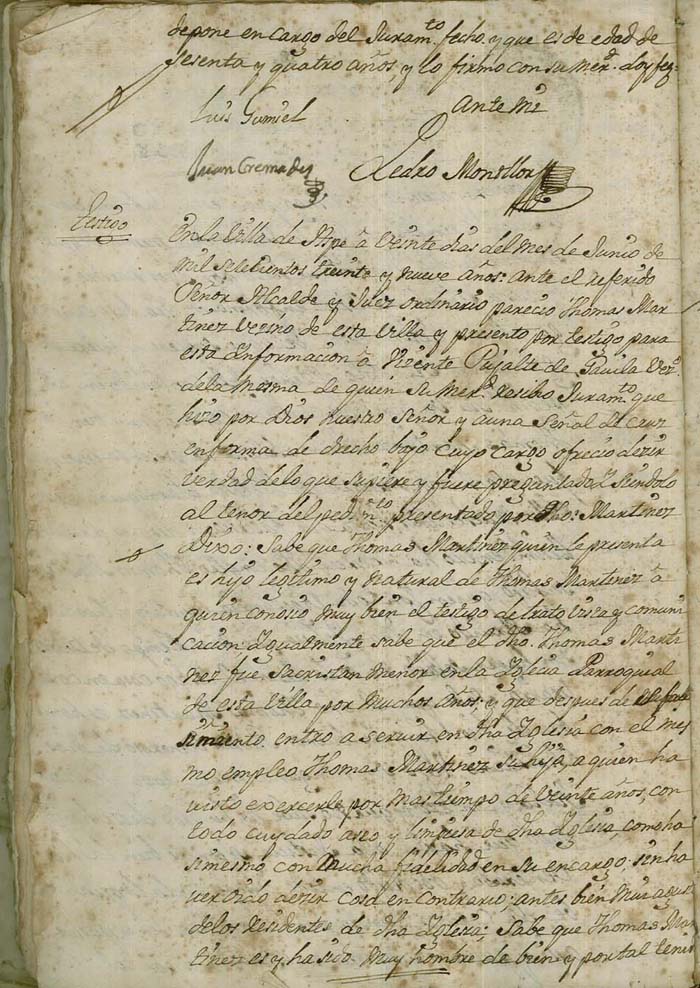 depone en cargo del Juramto. fecho. y que es de edad de
sesenta y quatro años, y lo firmo con su Merd. doy fee.
Luis Gumiel
Ante Mi
Juan Cremades
Pedro Montllor
Testigo
En la Villa de Aspe à Veinte dias del Mes de Junio de
mil setecientos treinta y nueve años: ante el referido
Señor Alcalde y Juez ordinario parecio Thomas Mar
tinez Vecino de esta Villa y presento por testigo para
esta Informacion à Vizente Pujalte de Avila Vezo.
de la Mesma de quien su Merd. recibio Juramto. que
hizo por Dios nuestro Señor y a una Señal de Cruz
en forma de drecho bajo cuyo cargo ofrecio dezir
verdad de lo que supiere y fuere preguntado, y siendolo
al tenor del pedimto. presentado por dho: Martinez
Dixo: Sabe que Thomas Martinez quien le presenta
es hijo legitimo y natural de Thomas Martinez à
quien conocio muy bien el testigo de trato vista y comuni
cacion: Igualmente sabe que el dho. Thomas Marti
nez fue Sacristan Menor en la Iglecia Parroquial
de esta Villa por Muchos Años; y que despues de su falle
simiento. entro a servir en dha Iglesia con el mes
mo empleo Thomas Martinez su hijo, a quien ha
visto exercerle por mas tiempo de Veinte años, con
todo cuydado aseo y limpiesa de dha Iglesia, como ha
simesmo con mucha fidelidad en su encargo; sin ha
ver oido dezir cosa en contrario; antes bien Mui a gusto
de los Residentes de dha Iglesia; Sabe que Thomas Mar
tinez es y ha sido Muy hombre de bien y por tal tenido